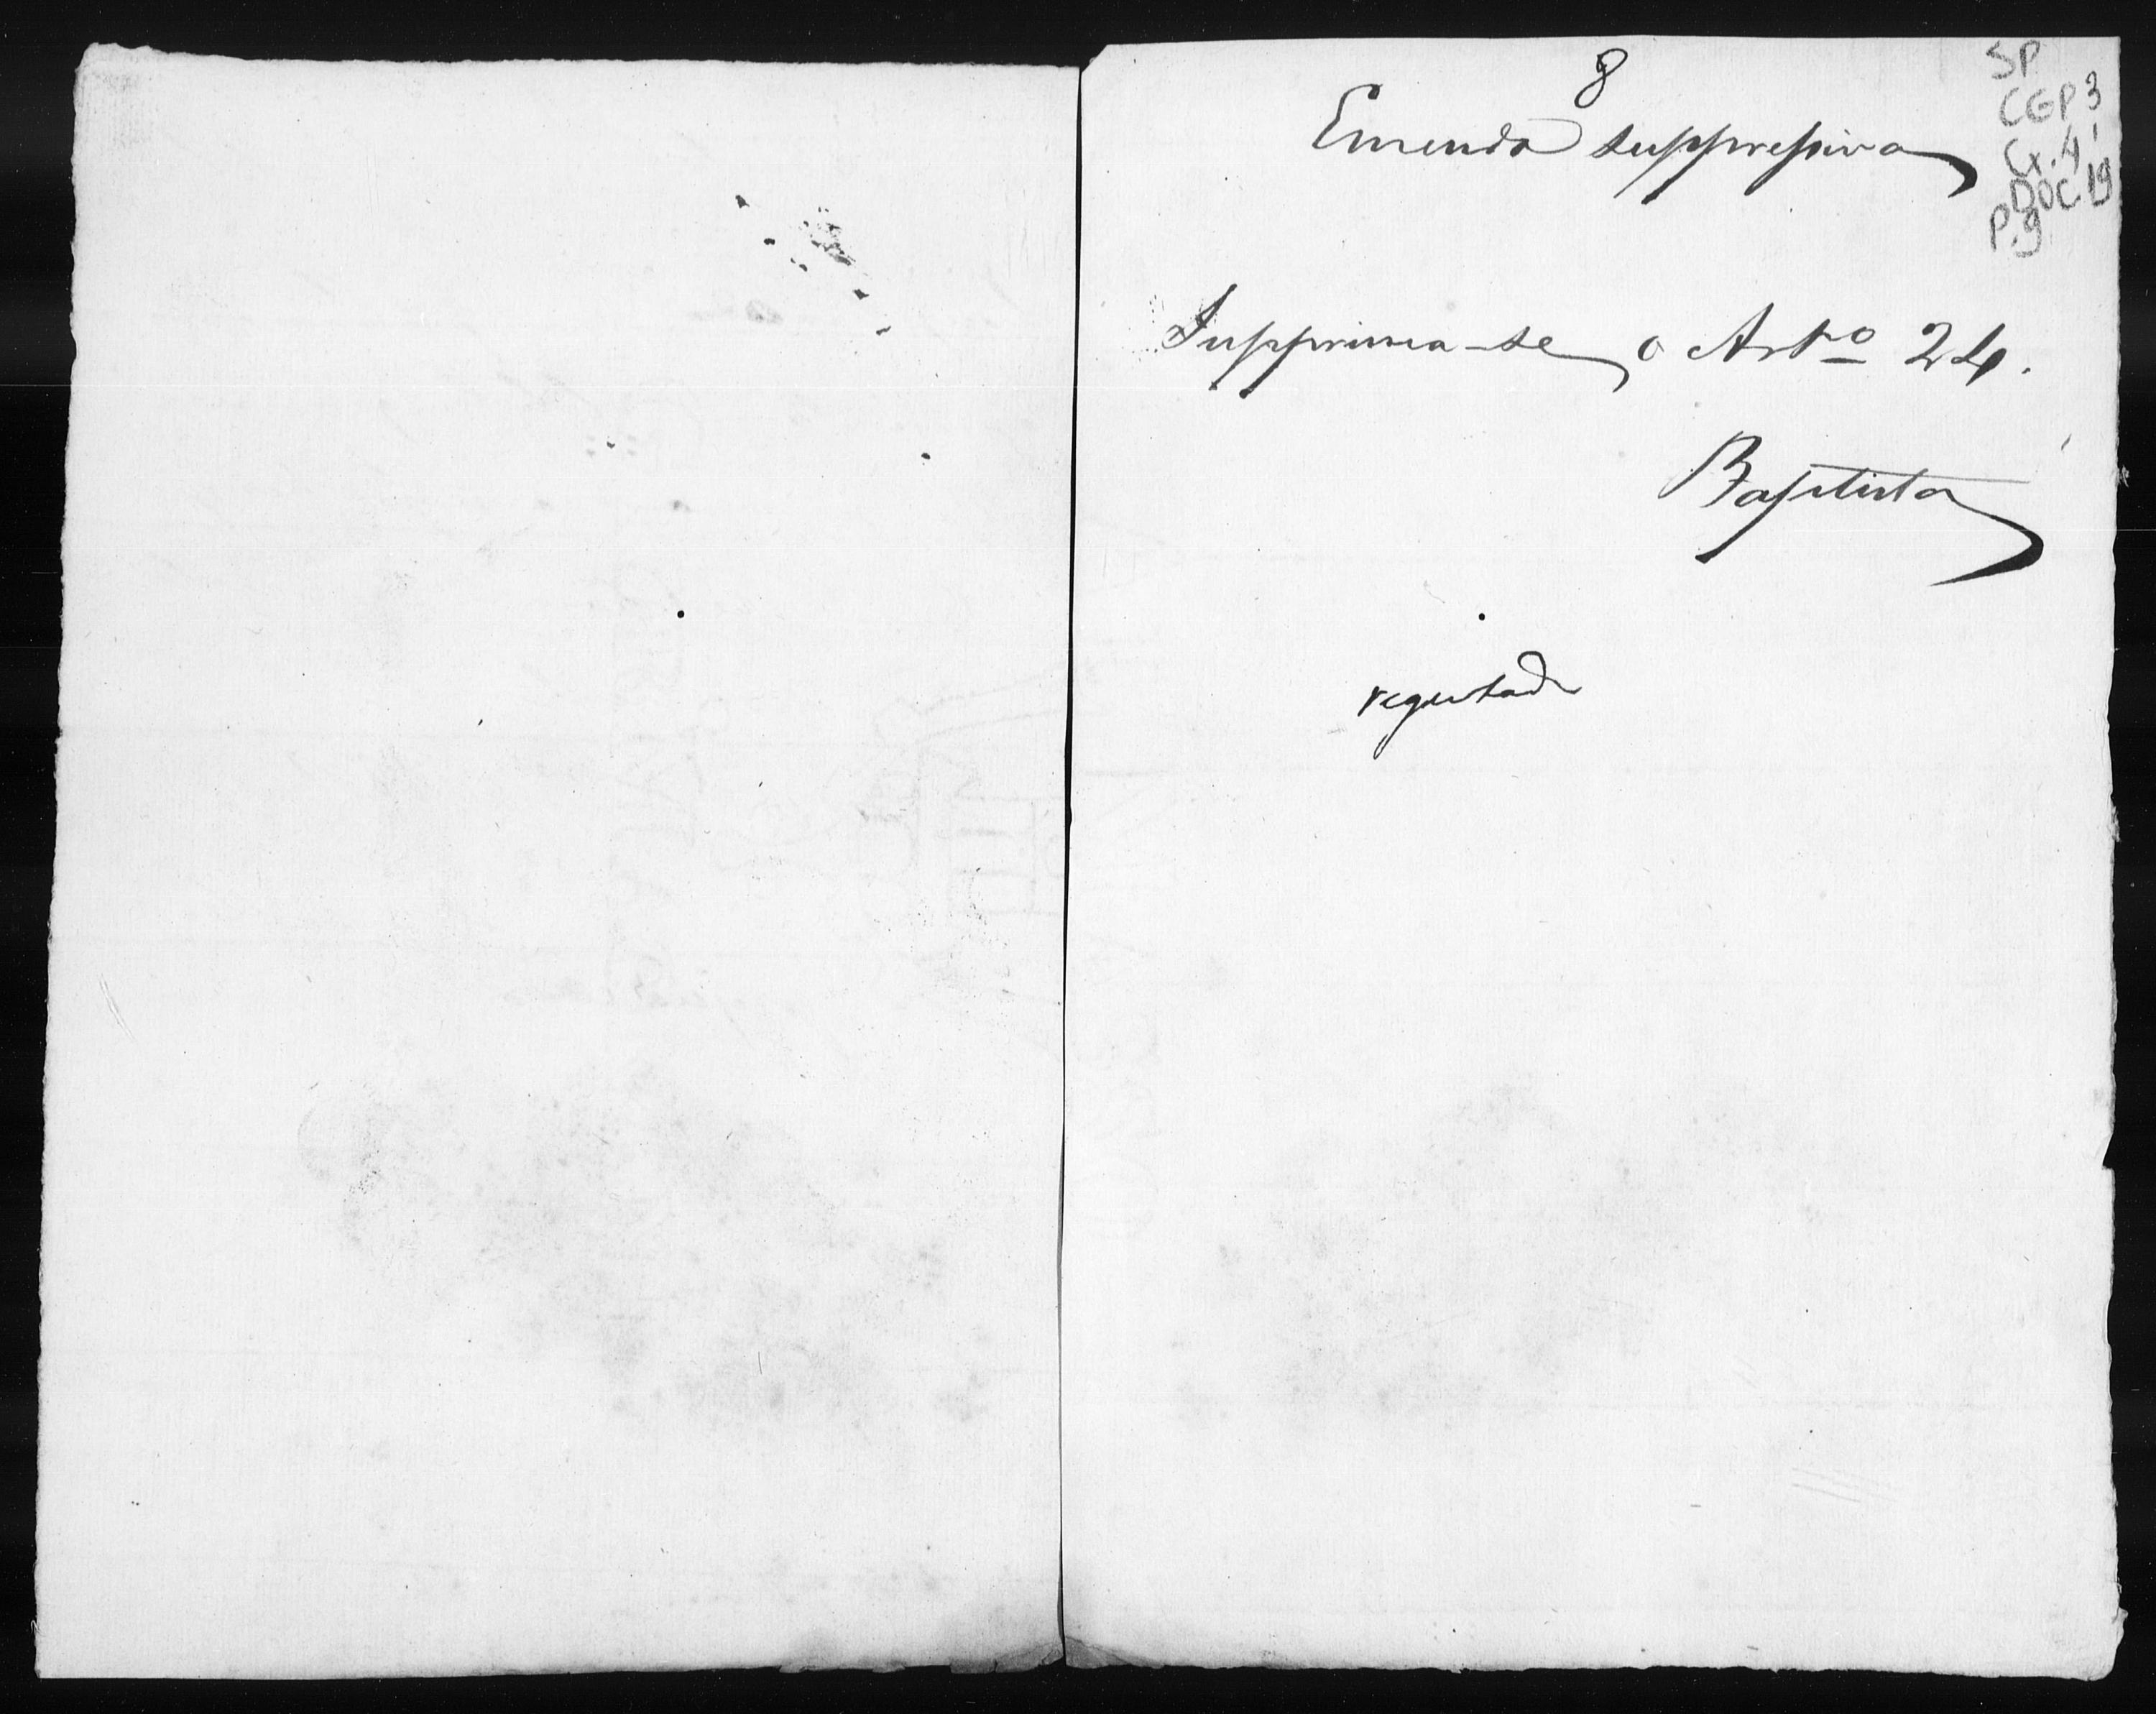 8
Emenda suppressiva
SP
CGP3
Cx. 4
DOC. 19
P. 9
Supprima-se o Artº 24.
Baptista
regeitada